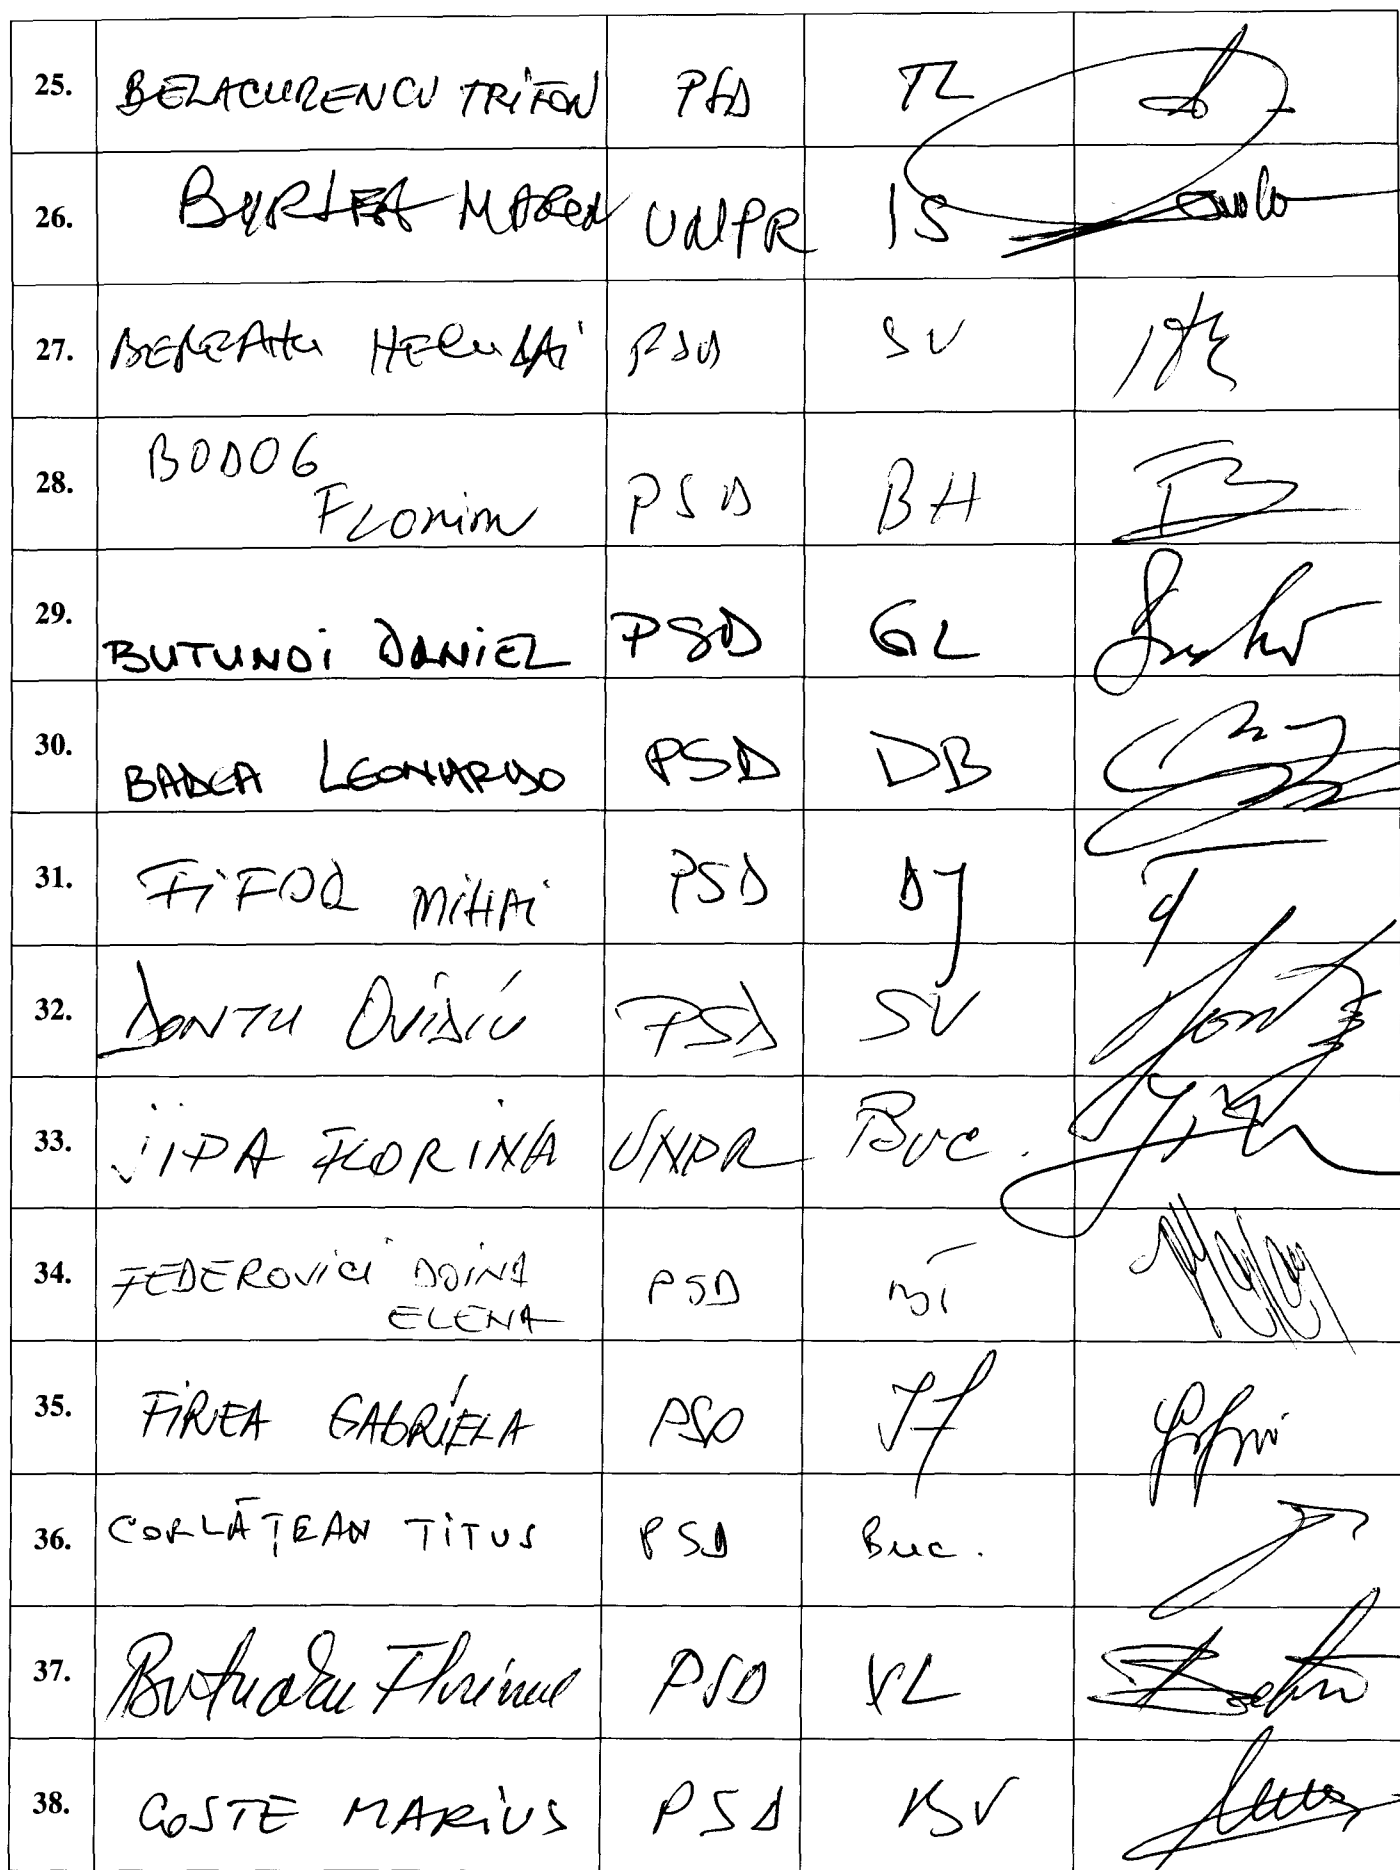 25. BELACURENCU TRIFON PSD TL
26. BURLEA MARIN UNPR IS
27. PSD SV
28. BODOG PSD BH
Florian
29. BUTUNOI DANIEL PSD GL
30. BADEA LEONARDO PSD DB
31. FIFOR MIHAI PSD DJ
32. DONTU OVIDIU PSD SV
33. JIPA FLORINA UNPR Buc.
34. FEDEROVICI DOINA PSD BT
ELENA
35. FIREA GABRIELA PSD IF
36. CORLĂȚEAN TITUS PSD Buc.
37. PSD VL
38. COSTE MARIUS PSD BV